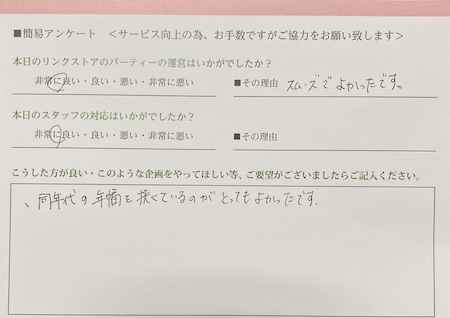 ■簡易アンケート　＜サービス向上の為、お手数ですがご協力をお願い致します＞
本日のリンクストアのパーティーの運営はいかがでしたか？
非常に良い・良い・悪い・非常に悪い　■その理由　スムーズでよかったです。
本日のスタッフの対応はいかがでしたか？
非常に良い・良い・悪い・非常に悪い　■その理由
こうした方が良い・このような企画をやってほしい等、ご要望がございましたらご記入ください。
、同年代の年幅を狭くているのがとってもよかったです.